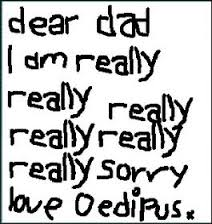 dear dad
I am really
really really
really really
really sorry
love Oedipus.